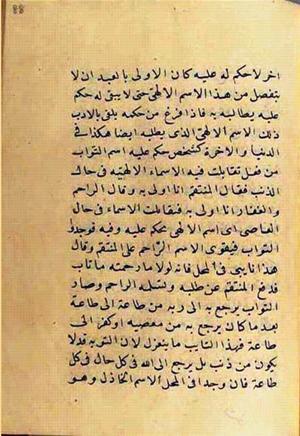 ٤٤
اخر لا حكم له عليه كان الاولى بالعبد ان لا
ينفصل من هذا الاسم الالهى حتى لا يبقى له حكم
عليه يطالبه به فاذا فرغ من حكمه يلقى بالادب
ذلك الاسم الالهى الذى يطلبه ايضا هكذا فى
الدنيا والاخرة كشخص حكم عليه اسم التواب
من فعل تقابلت فيه الاسماء الالهية فى حال
الذنب فقال المنتقم انا اولى به وقال الراحم
والغفار انا اولى به فتقابلت الاسماء فى حال
العاصى اى اسم الالهى يحكم عليه وفيه فوجدوا
التواب فيقوى الاسم الراحم على المنتقم وقال
هذا نايبى فى المحل فانه لولا ما رحمته ما تاب
فدفع المنتقم عن طلبه وتسلمه الراحم وصار
التواب يرجع به الى ربه من طاعة الى طاعة
بعد ما كان يرجع به من معصية او كفر الى
طاعة فهذا التايب ما ينعزل لان التوبة قد لا
يكون من ذنب بل يرجع الى الله فى كل حال فى كل
طاعة فان وجد فى المحل الاسم الخاذل وهو